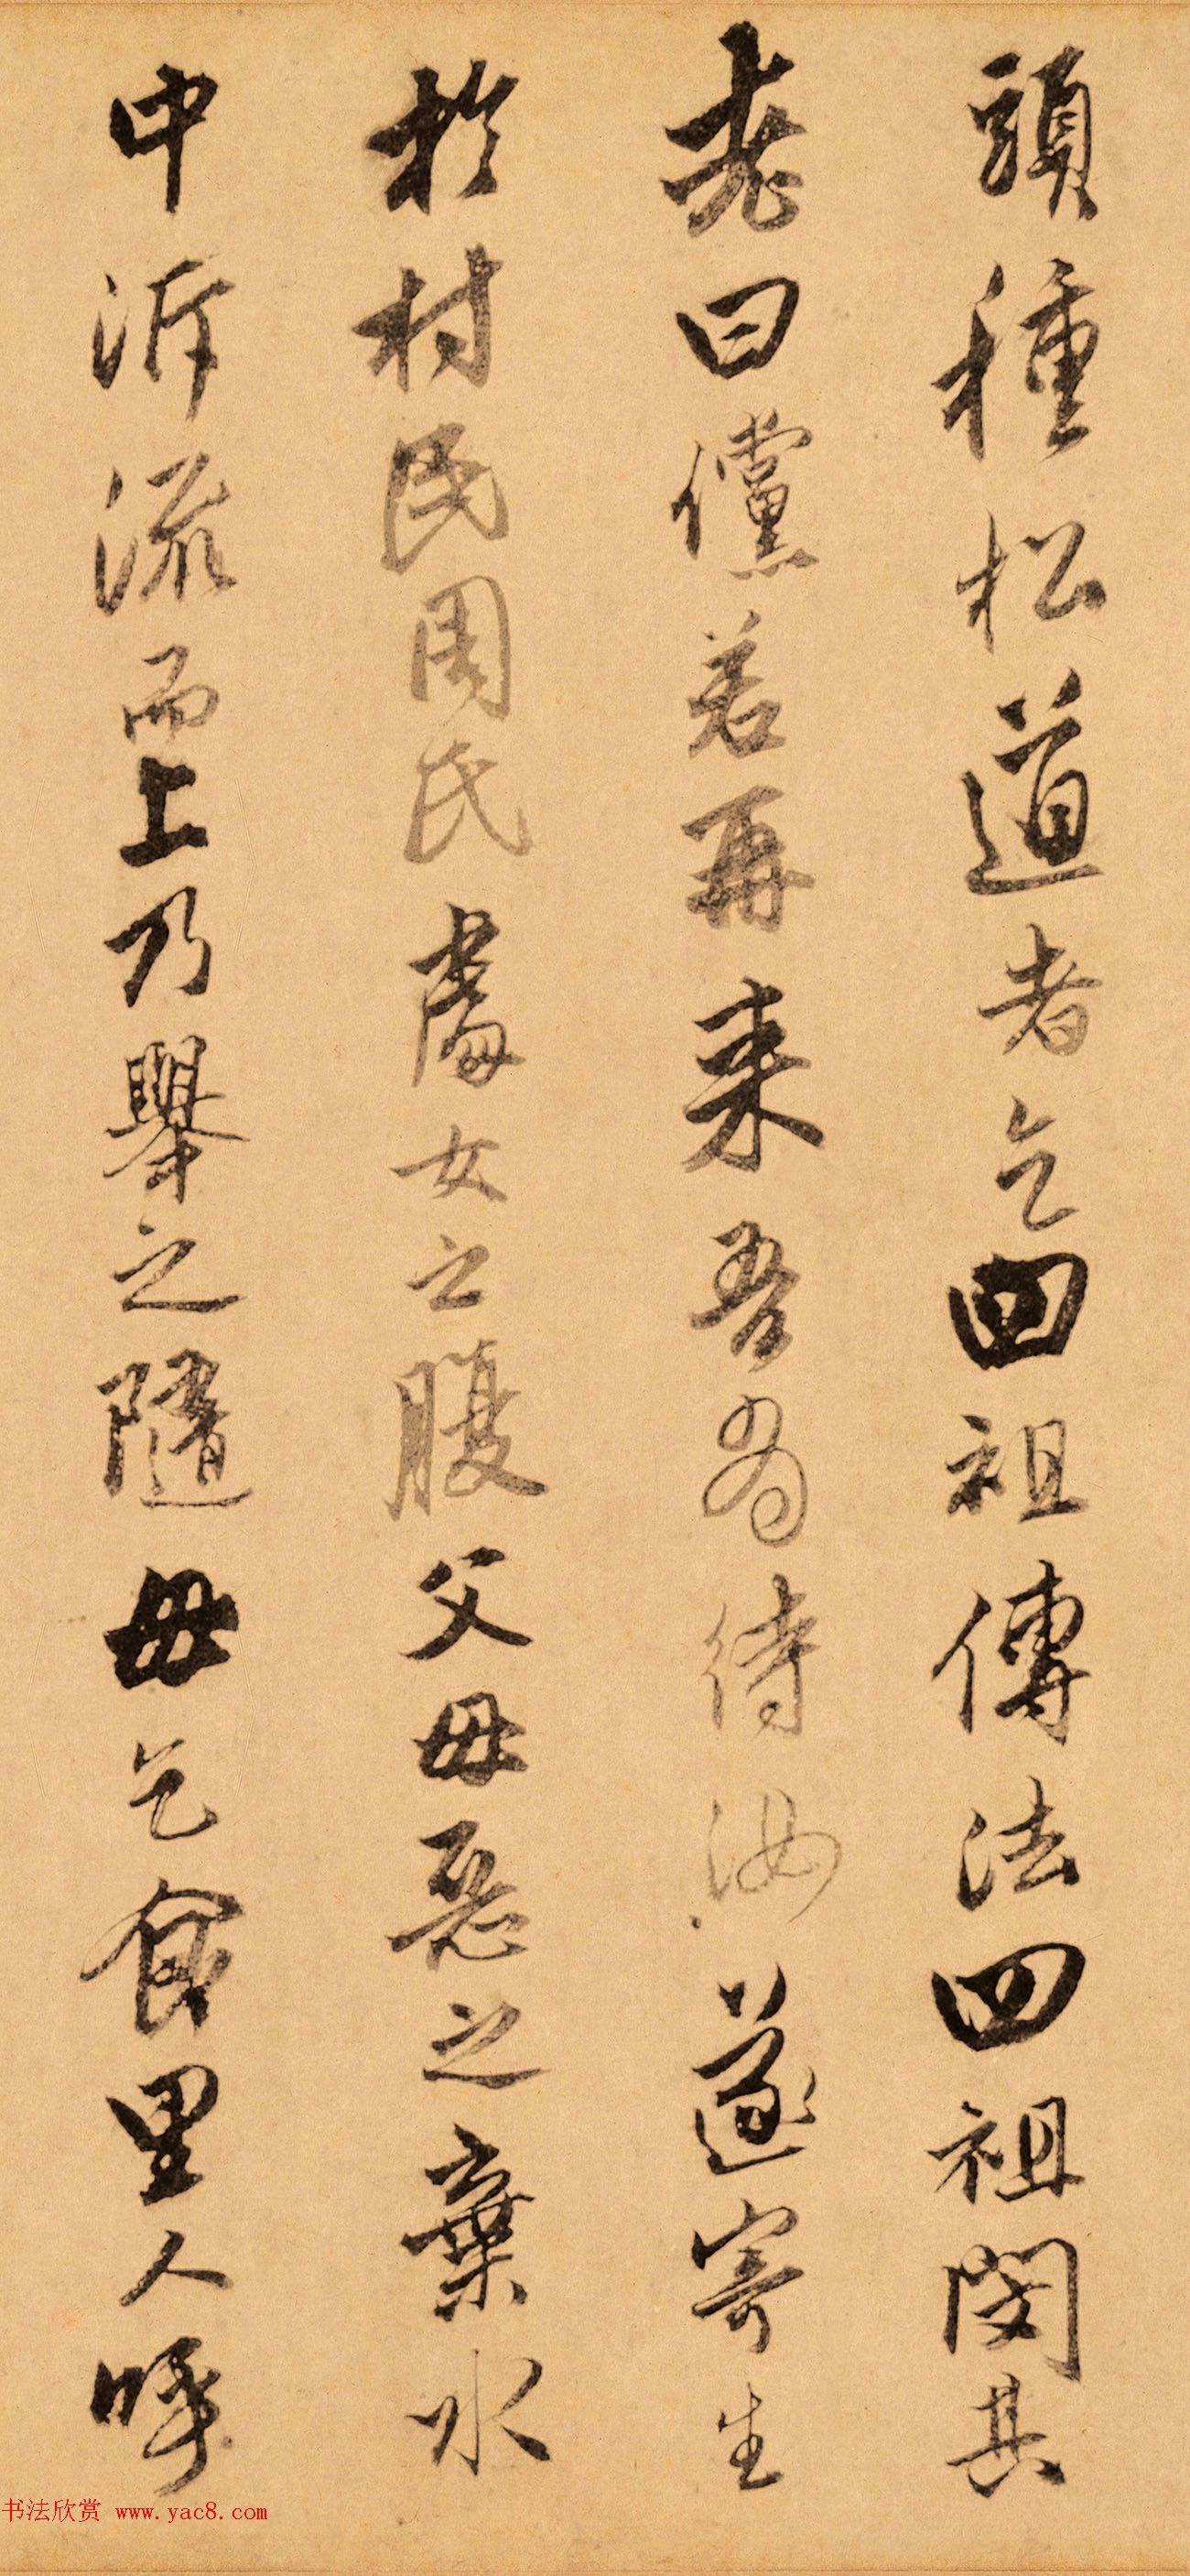 頭種松道者乞四祖傳法四祖閔其
老曰儻若再来吾尚待汝遂寄生
於村民周氏處女之腹父母惡之棄水
中泝流而上乃舉之隨母乞食里人呼
书法欣赏 www.yac8.com